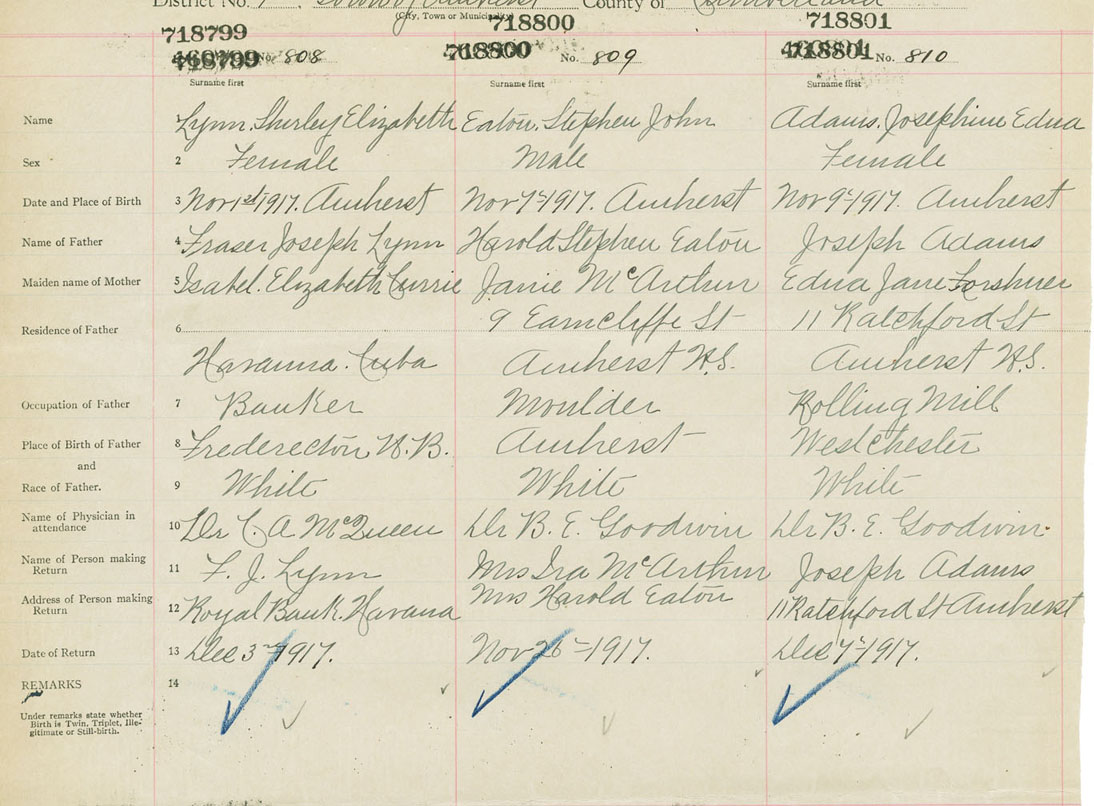 District No. 7 Town of Amherst County of Cumberland
(City, Town or Municipality)
718799 718800 718801
718799 No. 808 718800 No. 809 718801 No. 810
Surname first Surname first Surname first
Name Lynn. Shirley Elizabeth Eaton. Stephen John Adams. Josephine Edna
Sex 2 Female Male Female
Date and Place of Birth 3 Nov 1st 1917. Amherst Nov 7th 1917. Amherst Nov 9th 1917. Amherst
Name of Father 4 Fraser Joseph Lynn Harold Stephen Eaton Joseph Adams
Maiden name of Mother 5 Isabel. Elizabeth Currie Janie McArthur Edna Jane Forshner
Residence of Father 6 9 Earncliffe St 11 Ratchford St
Havanna. Cuba Amherst N.S. Amherst N.S.
Occupation of Father 7 Banker Moulder Rolling Mill
Place of Birth of Father 8 Frederecton N.B. Amherst Westchester
and
Race of Father. 9 White White White
Name of Physician in attendance 10 Dr C. A. McQueen Dr B. E. Goodwin Dr B. E. Goodwin.
Name of Person making Return 11 F. J. Lynn Mrs Ira McArthur Joseph Adams
Address of Person making Return 12 Royal Bank. Havana Mrs Harold Eaton 11 Ratchford St Amherst
Date of Return 13 Dec 3rd 1917. Nov 26th 1917. Dec 7th 1917.
REMARKS 14
Under remarks state whether
Birth is Twin, Triplet, Ille-
gitimate or Still-birth.